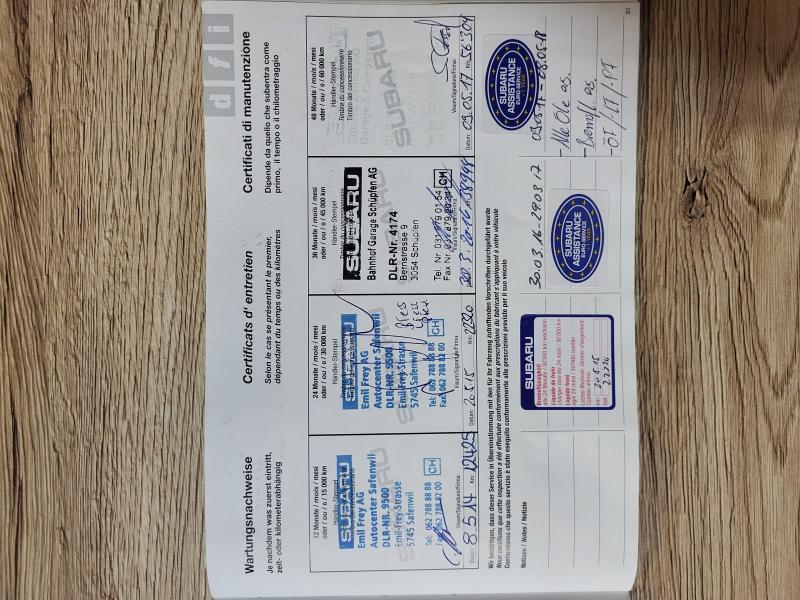 d f i
Wartungsnachweise
Je nachdem was zuerst eintritt,
zeit- oder kilometerabhängig
Certificats d' entretien
Selon le cas se présentant le premier,
dépendant du temps ou des kilomètres
Certificati di manutenzione
Dipende da quello che subentra come
primo, il tempo o il chilometraggio
12 Monate / mois / mesi
oder / ou / o / 15 000 km
Händler-Stempel
SUBARU
Emil Frey AG
Autocenter Safenwil
DLR-NR. 9500
Emil-Frey-Strasse
5745 Safenwil
Tel: 062 788 88 88
Fax: 062 788 82 00
CH
Visum/Signature/Firma:
Datum: 8.5.14 Km 12425
24 Monate / mois / mesi
oder / ou / o / 30 000 km
Händler-Stempel
Emil Frey AG
Autocenter Safenwil
DLR-NR. 9500
Emil-Frey-Strasse
5745 Safenwil
Tel: 062 788 88 88
Fax: 062 788 82 00
CH
Visum/Signature/Firma:
Datum: 20.5.15 Km 22320
36 Monate / mois / mesi
oder / ou / o / 45 000 km
Händler-Stempel
SUBARU
Bahnhof Garage Schüpfen AG
DLR-Nr. 4174
Bernstrasse 9
3054 Schüpfen
Tel. Nr. 031 879 01 54
Fax Nr.
CH
48 Monate / mois / mesi
oder / ou / o / 60 000 km
Händler-Stempel
Timbre du concessionnaire
Timbro del concessionario
SUBARU
Visum/Signature/Firma:
Datum: 09.05.17 Km 56'304
Wir bestätigen, dass dieser Service in Übereinstimmung mit den für Ihr Fahrzeug zutreffenden Vorschriften durchgeführt wurde
Nous certifions que cette inspection a été effectuée conformément aux prescriptions du fabricant s'appliquant à votre véhicule
Confermiamo che questo servizio è stato eseguito conformamente alle prescrizioni previste per il suo veicolo
Notizen / Notes / Notizie
SUBARU
Bremsflüssigkeit
Liquide de frein
Liquido freni
20.5.15
22320
30.03.16-29.03.17
SUBARU
ASSISTANCE
EURO-SERVICE
SUBARU
ASSISTANCE
EURO-SERVICE
09.05.17 - 08.05.18
- Alle Öle as.
- Bremsfl. as
31